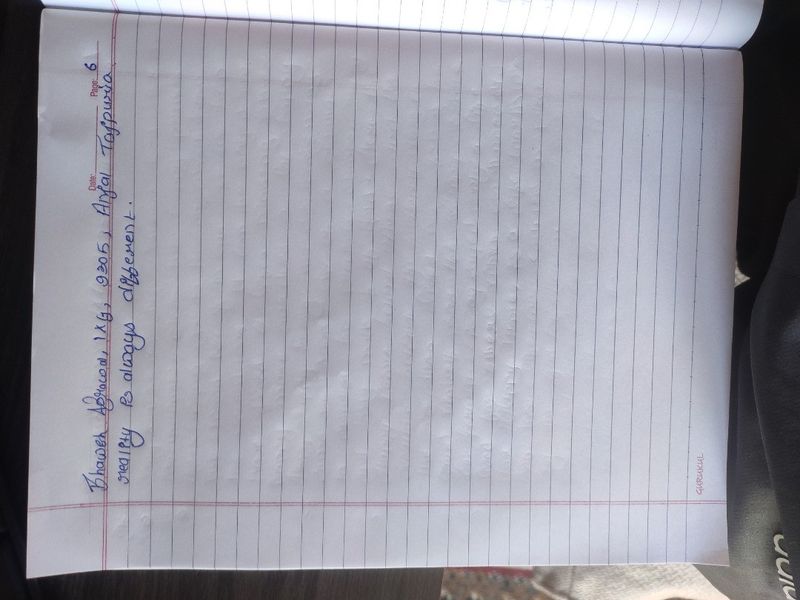 Date: Page: 6
Bhavesh Agrawal, IXG, 9305, Anjal Tajpuria
reality is always different.
GURUKUL